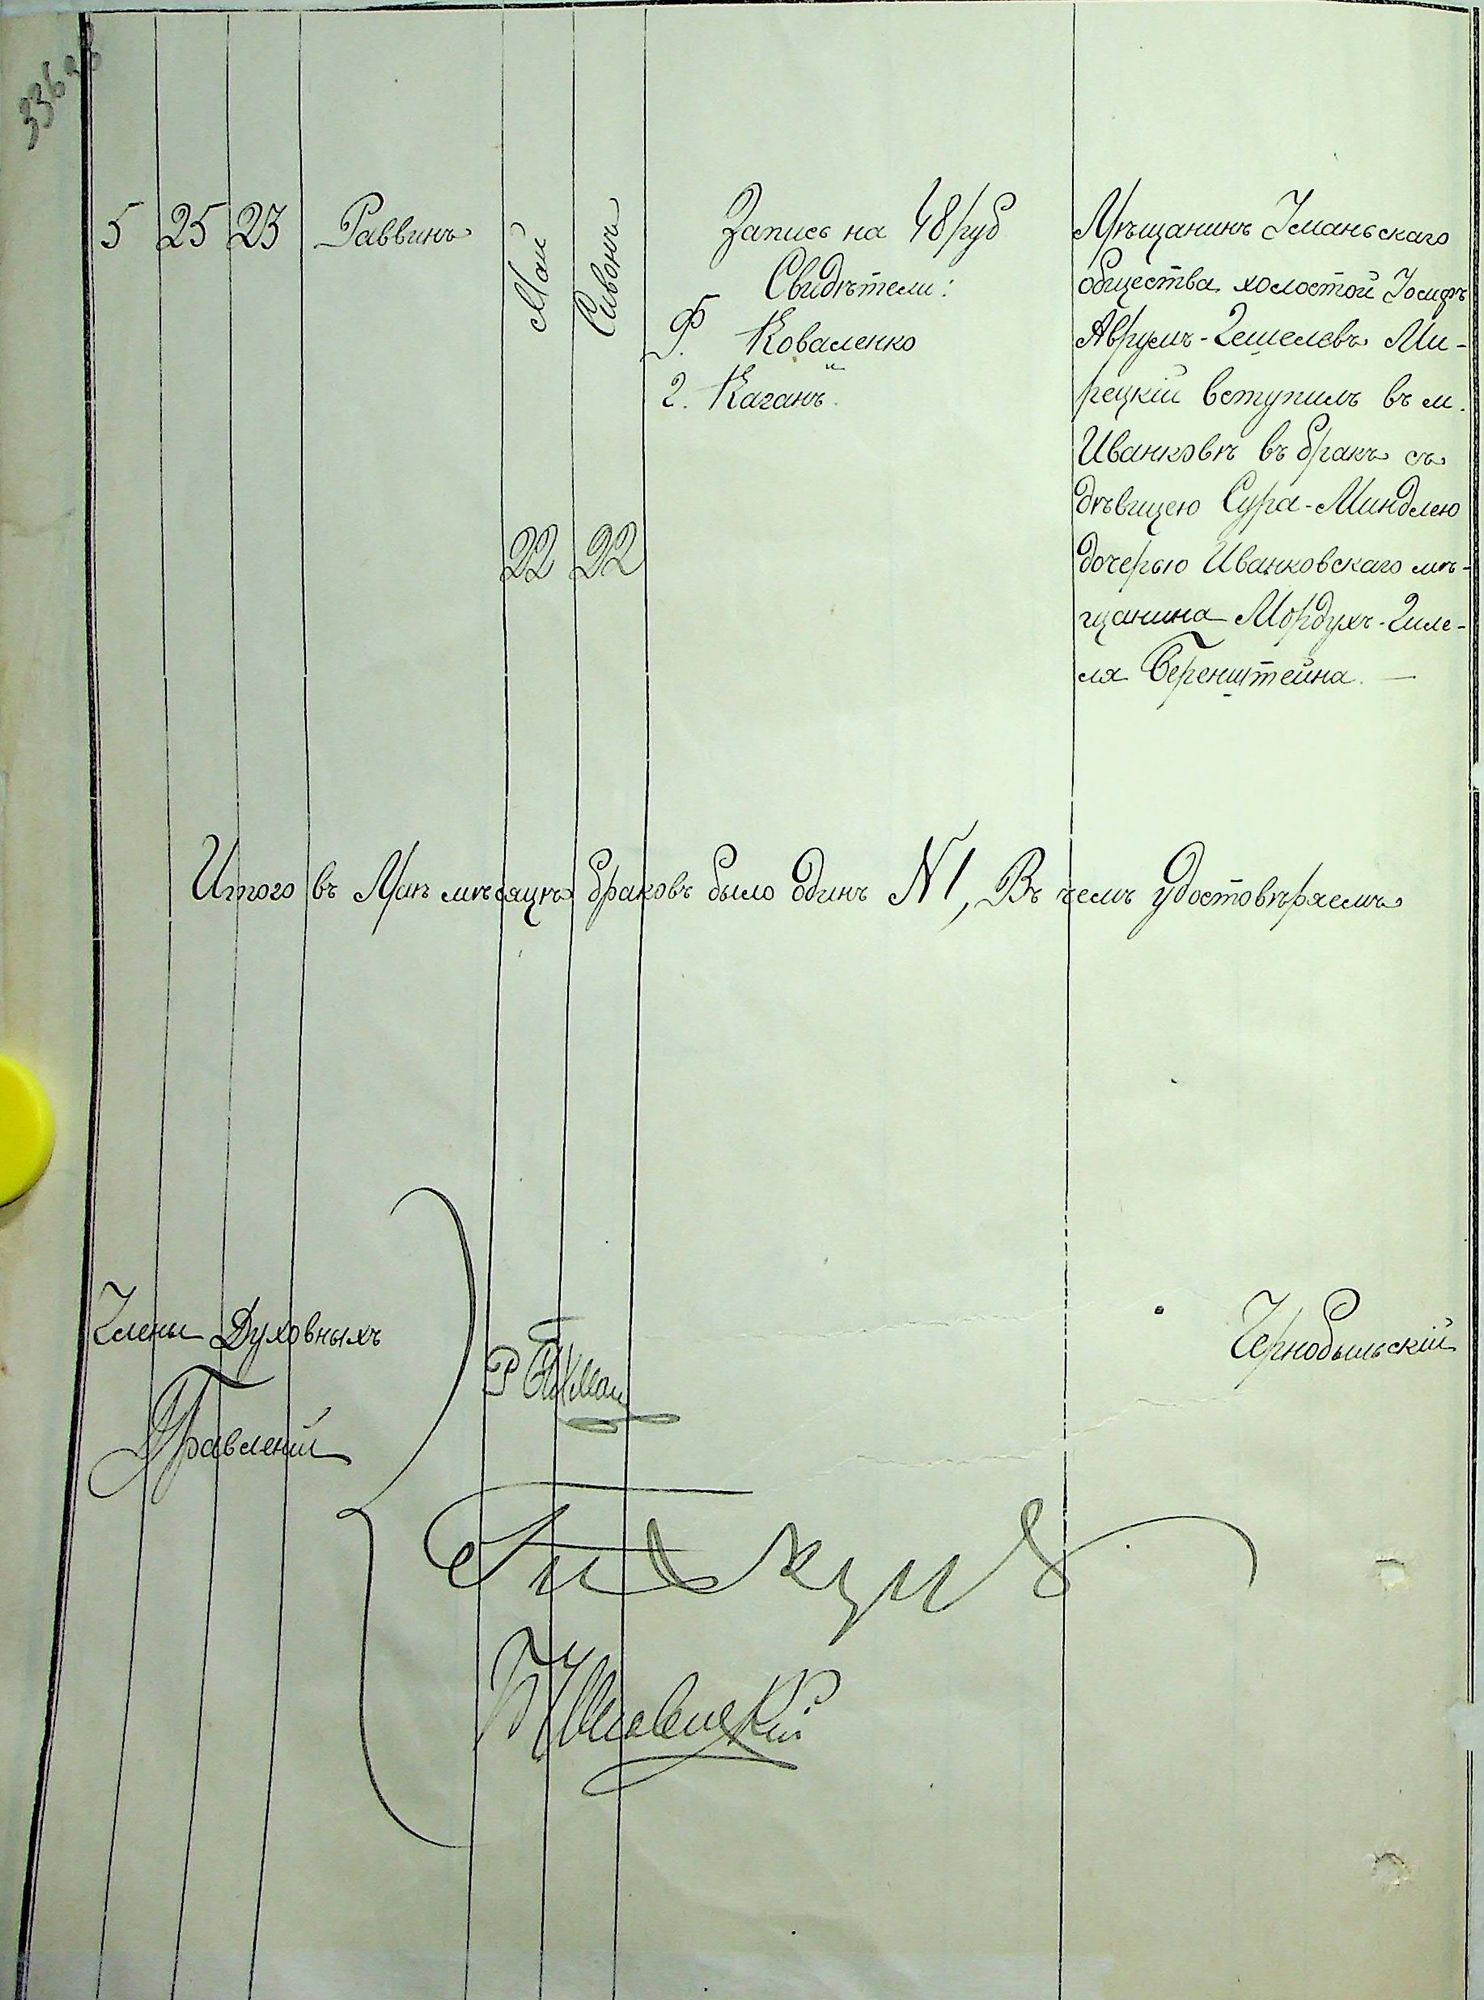 336
5 25 23 Раввинъ Май 22 Сивонъ 22
Запись на 48 руб
Свидѣтели:
Ф. Коваленко
2. Каганъ.
Мѣщанинъ Уманьскаго
общества холостой Іосифъ
Аврумъ-Гешелевъ Ми-
рецкій вступилъ въ м.
Иванковѣ въ бракъ съ
дѣвицею Сура-Миндлею
дочерью Иванковскаго мѣ-
щанина Мордухъ-Гиле-
ля Беренштейна. —
Итого въ Маѣ мѣсяцѣ браковъ было одинъ №1, Въ чемъ удостовѣряемъ
Члены Духовныхъ
Правленій
Чернобыльскій